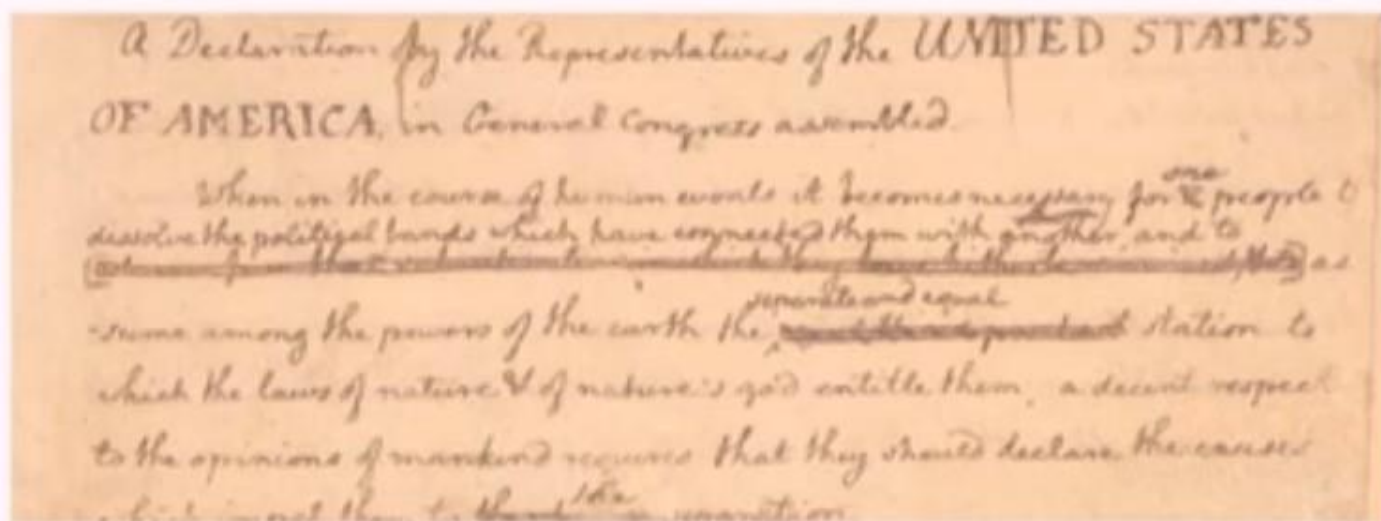 A Declaration by the Representatives of the UNITED STATES
OF AMERICA, in General Congress assembled.
When in the course of human events it becomes necessary for one people to
dissolve the political bands which have connected them with another, and to
as
separate and equal
-sume among the powers of the earth the station to
which the laws of nature & of nature's god entitle them, a decent respect
to the opinions of mankind requires that they should declare the causes
the
which impel them to separation.